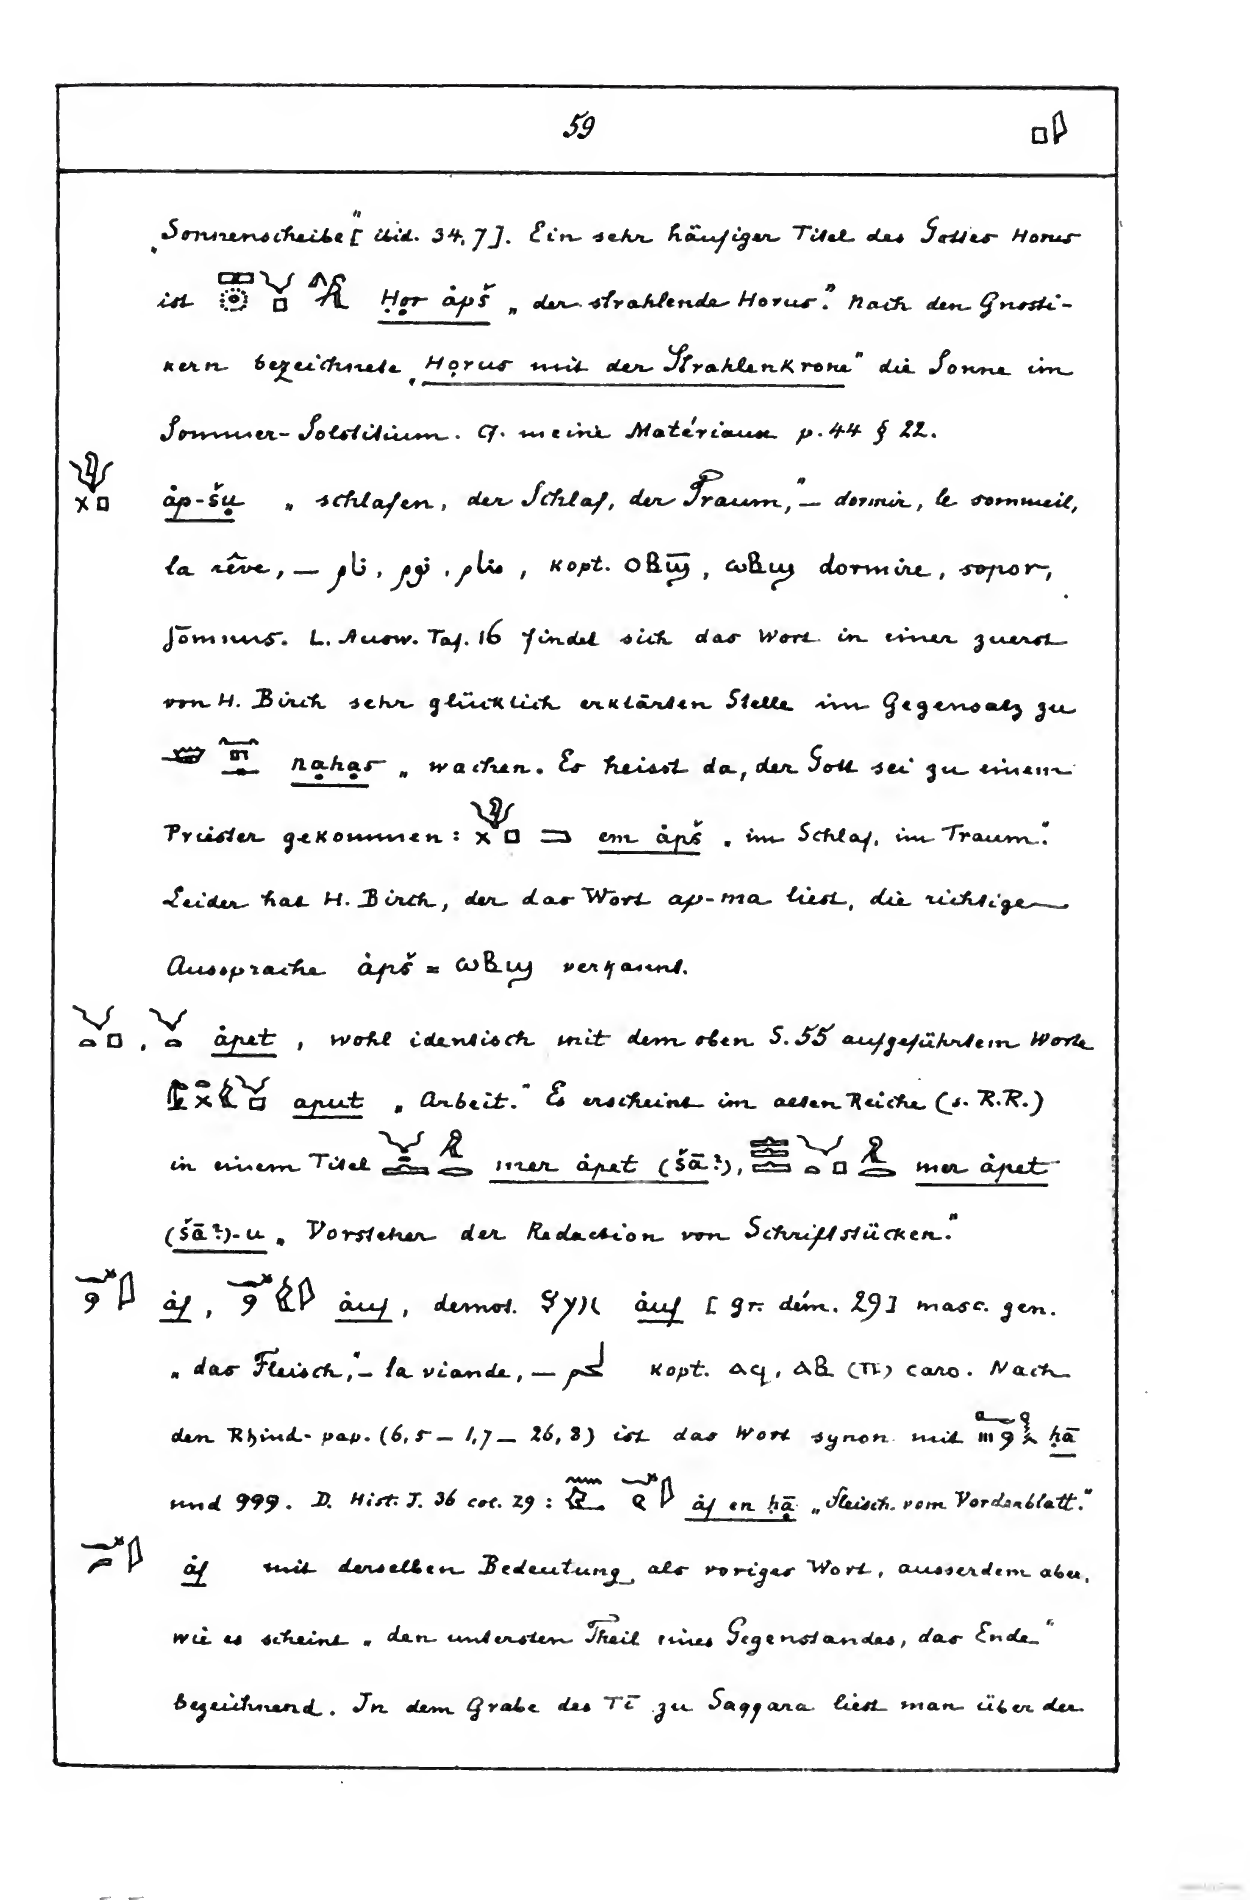 59
„Sonnenscheibe“ [ibid. 34,7]. Ein sehr häufiger Titel des Gottes Horus
ist Ḥor ȧpš „der strahlende Horus“. Nach den Gnosti-
kern bezeichnete „Horus mit der Strahlenkrone“ die Sonne im
Sommer-Solstitium. Cf. meine Matériaux p. 44 § 22.
ȧp-šu „schlafen, der Schlaf, der Traum,“ — dormir, le sommeil,
la rêve, — kopt. ⲟⲃϣ̅, ⲱⲃϣ dormire, sopor,
somnus. L. Ausw. Taf. 16 findet sich das Wort in einer zuerst
von H. Birch sehr glücklich erklärten Stelle im Gegensatz zu
nahas „wachen. Es heisst da, der Gott sei zu einem
Priester gekommen: em ȧpš „im Schlaf, im Traum“.
Leider hat H. Birch, der das Wort ap-ma liest, die richtige
Aussprache ȧpš = ⲱⲃϣ verkannt.
, ȧpet, wohl identisch mit dem oben S. 55 aufgeführtem Worte
aput „Arbeit.“ Es erscheint im alten Reiche (s. R.R.)
in einem Titel mer ȧpet (šā?), mer ȧpet
(šā?)-u „Vorsteher der Redaction von Schriftstücken.“
ȧf, ȧuf, demot. ȧuf [gr. dém. 29] masc. gen.
„das Fleisch,“ — la viande, — kopt. ⲁϥ, ⲁⲃ (ⲡⲓ) caro. Nach
den Rhind-pap. (6,5 — 1,7 — 26,8) ist das Wort synon. mit ḥā
und 999. D. Hist. J. 36 col. 29: ȧf en ḥā „Fleisch vom Vorderblatt.“
ȧf mit derselben Bedeutung als voriges Wort, ausserdem aber,
wie es scheint „den untersten Theil eines Gegenstandes, das Ende“
bezeichnend. In dem Grabe des Tī zu Saqqara liest man über der